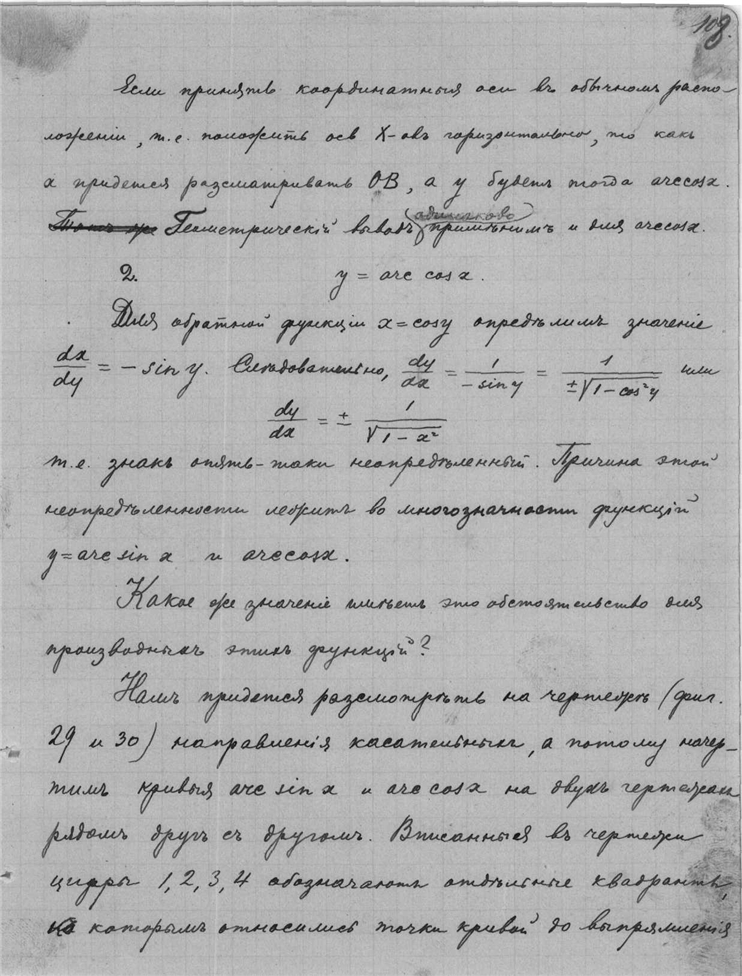 109.
Если принять координатныя оси въ обычномъ распо-
ложеніи, т.е. положить ось X-овъ горизонтально, то какъ
x придется разсматривать OB, а y будетъ тогда arccosx.
Геометрическій выводъ одинаково примѣнимъ и для arccosx.
2. y = arc cos x.
Для обратной функціи x = cosy опредѣлимъ значеніе
dx/dy = - sin y. Слѣдовательно, dy/dx = 1/(- sin y) = 1/(± √(1 - cos²y)) или
dy/dx = ± 1/√(1 - x²)
т.е. знакъ опять-таки неопредѣленный. Причина этой
неопредѣленности лежитъ во многозначности функцій
y = arc sin x и arccosx.
Какое же значеніе имѣетъ это обстоятельство для
производныхъ этихъ функцій?
Намъ придется разсмотрѣть на чертежѣ (фиг.
29 и 30) направленія касательныхъ, а потому начер-
тимъ кривыя arc sin x и arc cosx на двухъ чертежахъ
рядомъ другъ съ другомъ. Вписанныя въ чертежи
цифры 1, 2, 3, 4 обозначаютъ отдѣльные квадранты,
къ которымъ относились точки кривой до выпрямленія